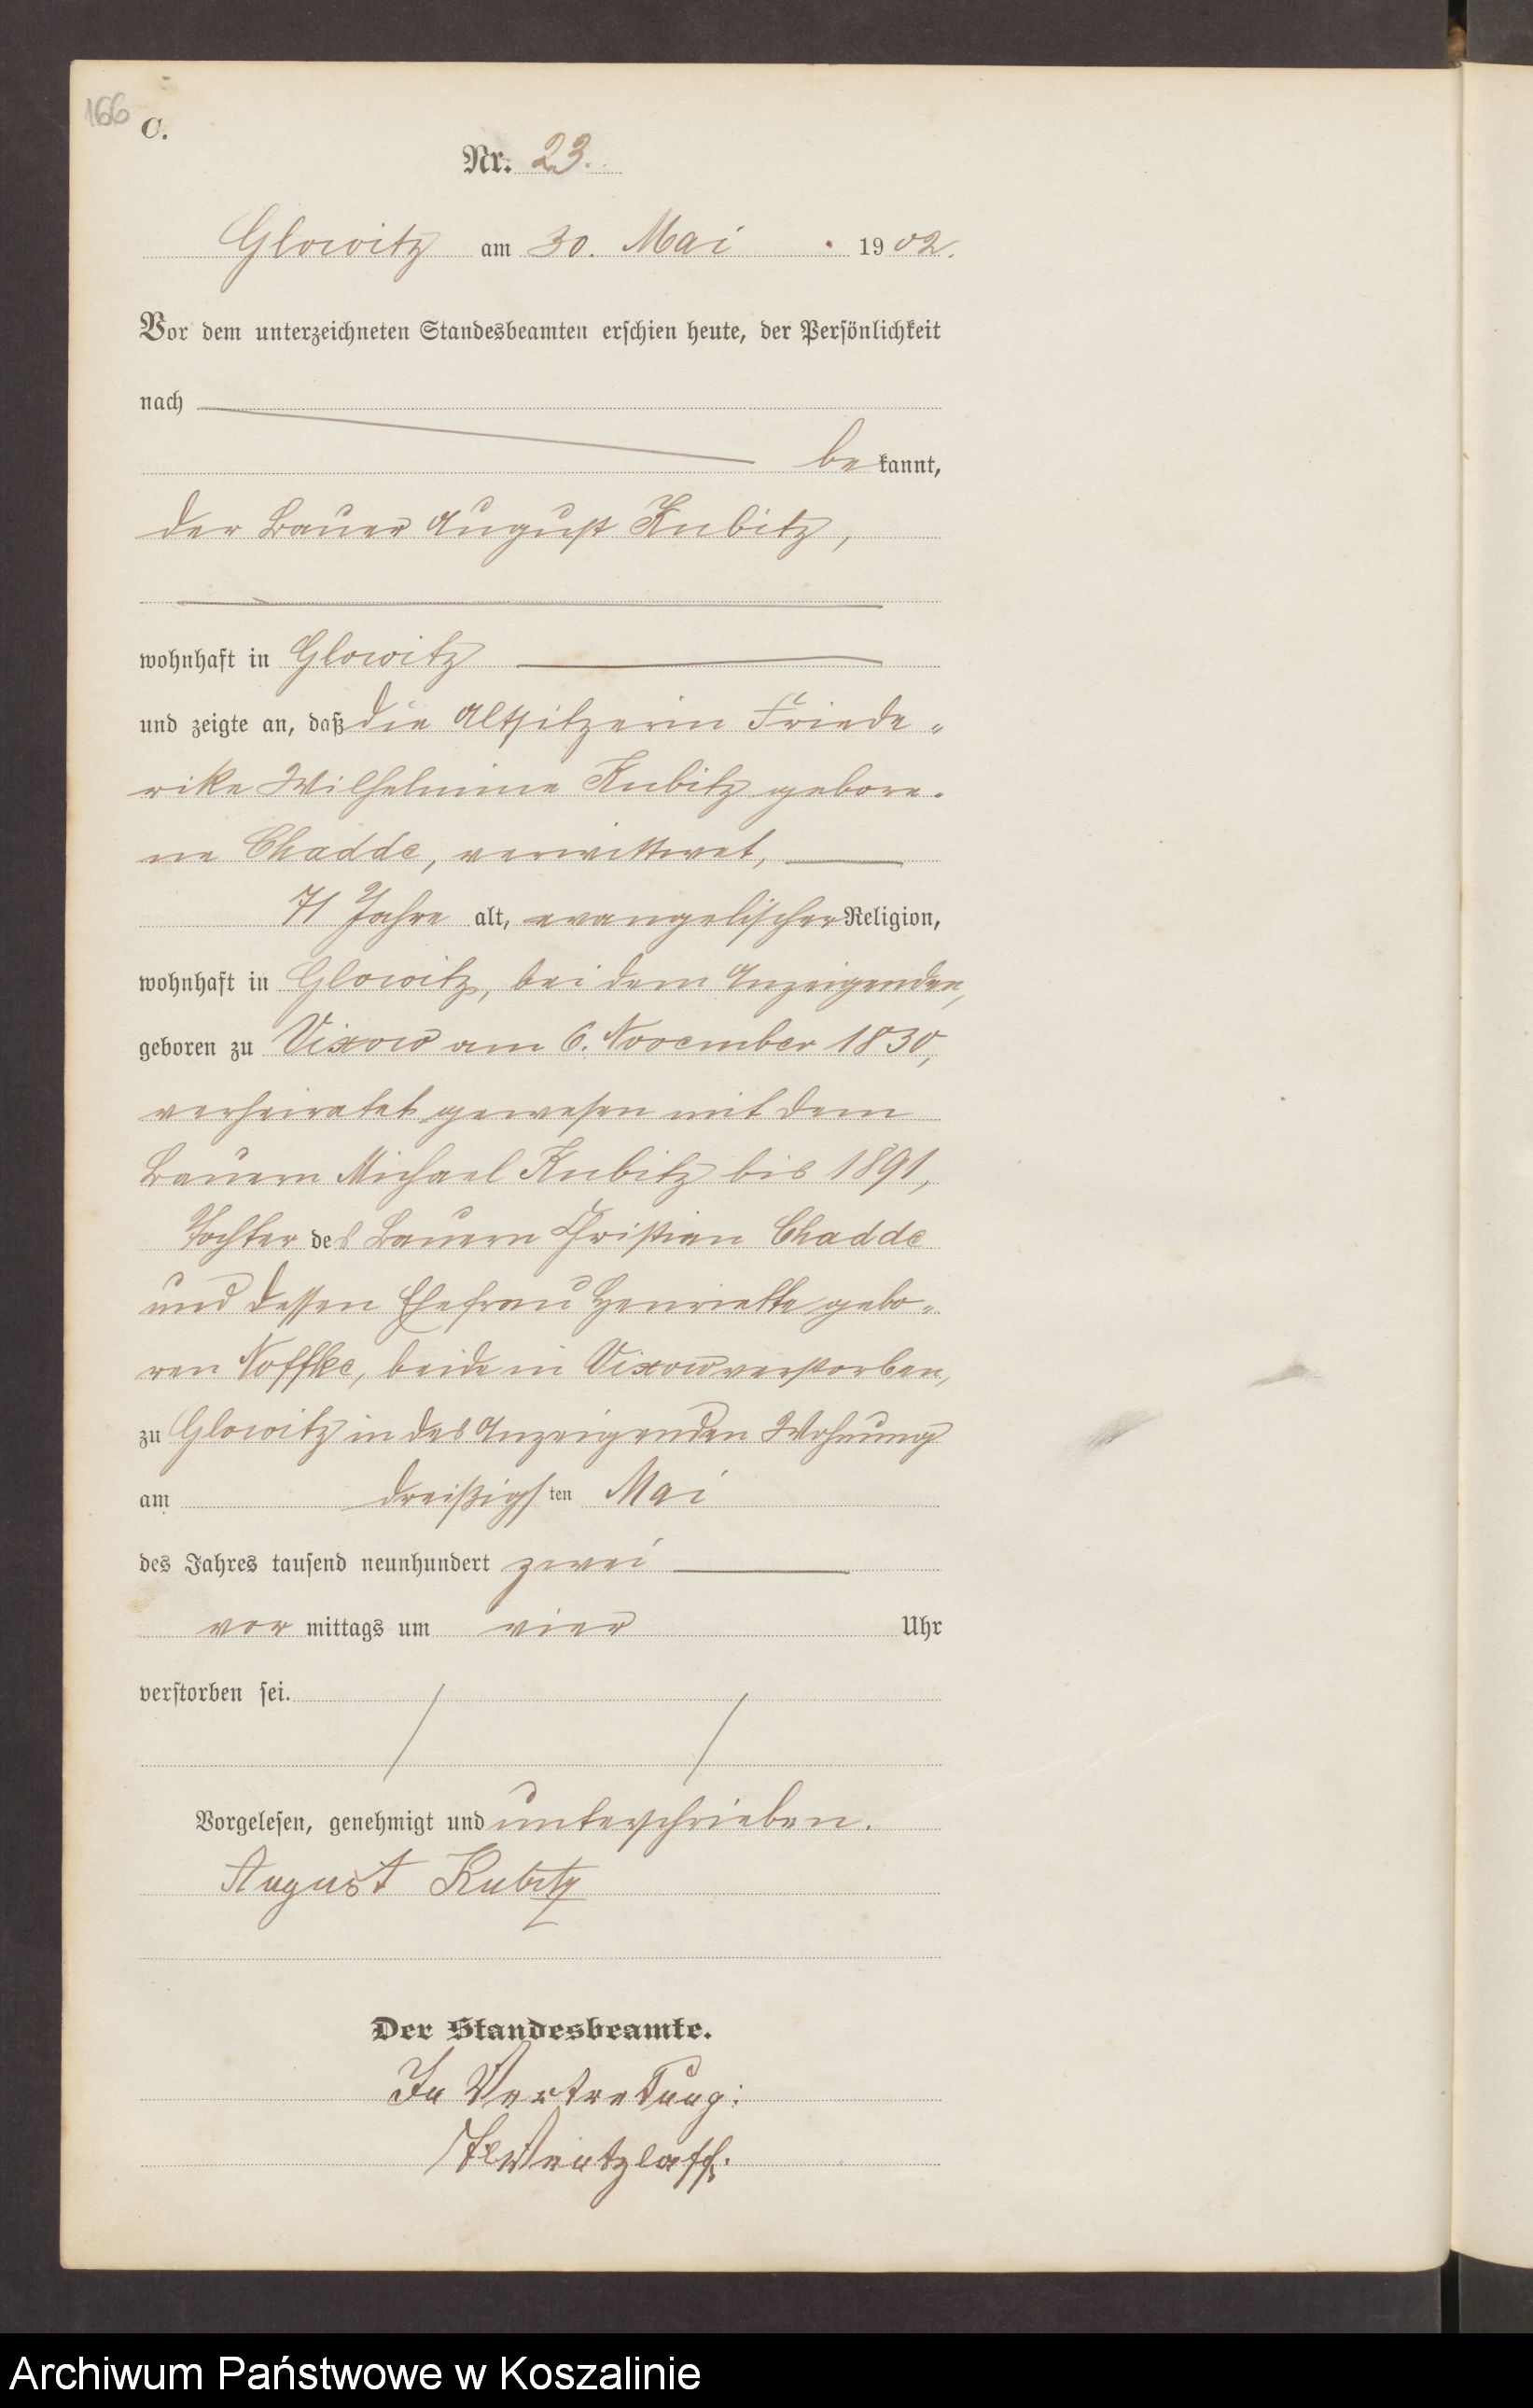 166
C.
Nr. 23.
Glowitz am 30. Mai 1902.
Vor dem unterzeichneten Standesbeamten erschien heute, der Persönlichkeit
nach
bekannt,
der Bauer August Kubitz,
wohnhaft in Glowitz
und zeigte an, daß die Altsitzerin Friede„
rike Wilhelmine Kubitz gebore„
ne Chadde, verwittwet,
71 Jahre alt, evangelischer Religion,
wohnhaft in Glowitz, bei dem Anzeigenden,
geboren zu Vixow am 6. November 1830,
verheiratet gewesen mit dem
Bauern Michael Kubitz bis 1891,
Tochter des Bauern Christian Chadde
und dessen Ehefrau Henriette gebo„
ren Noffke, beide in Vixow verstorben,
zu Glowitz in des Anzeigenden Wohnung
am dreißigsten Mai
des Jahres tausend neunhundert zwei
vor mittags um vier Uhr
verstorben sei.
Vorgelesen, genehmigt und unterschrieben.
August Kubitz
Der Standesbeamte.
In Vertretung:
Archiwum Państwowe w Koszalinie